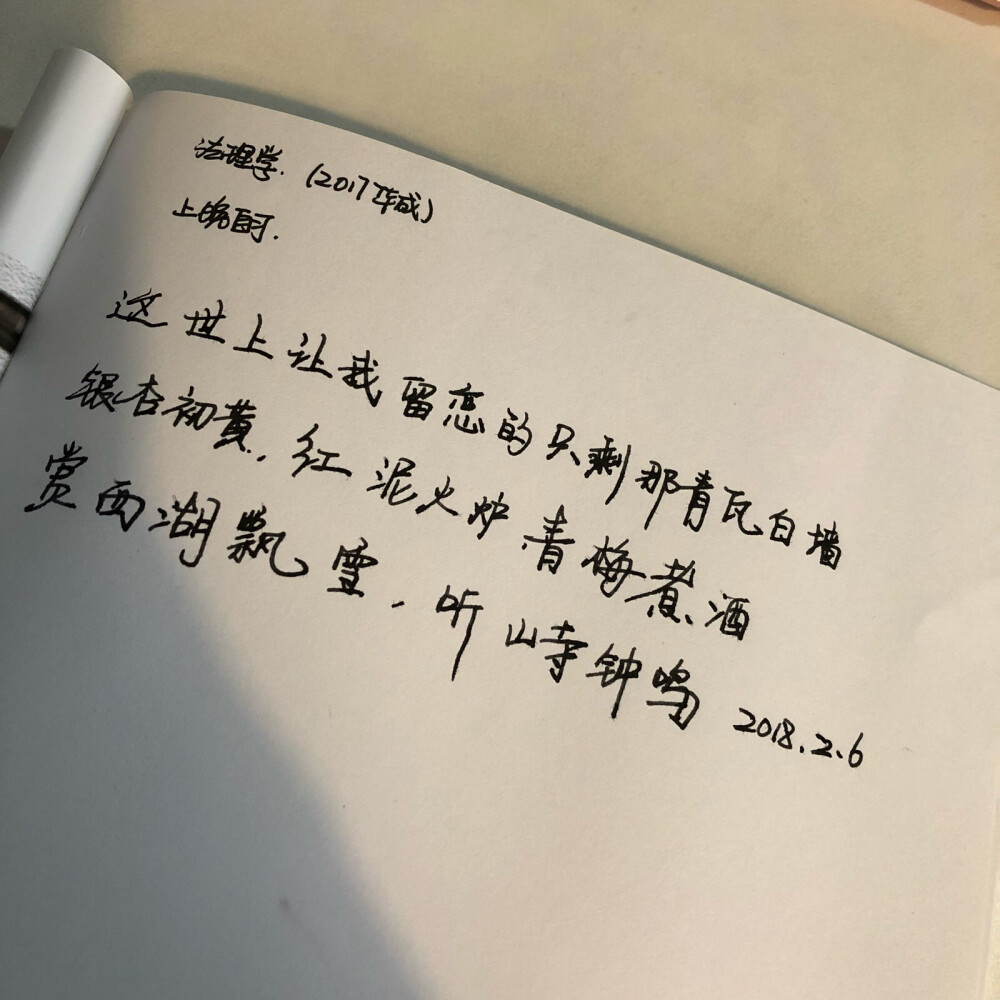 法理学. (2017年成)
上
这世上让我留恋的只剩那青瓦白墙
银杏初黄.红泥火炉青梅煮酒
赏西湖飘雪.听山寺钟鸣 2018.2.6